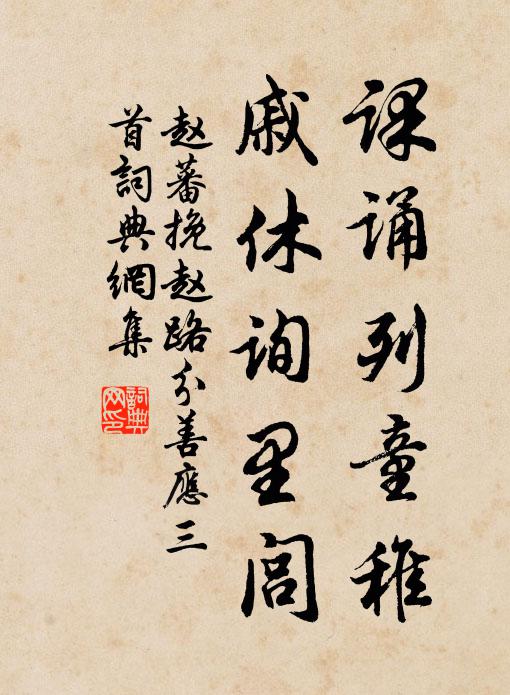 课诵列童稚
戚休询里闾
赵蕃挽赵路分善应三
首詞典網集
詞典网印